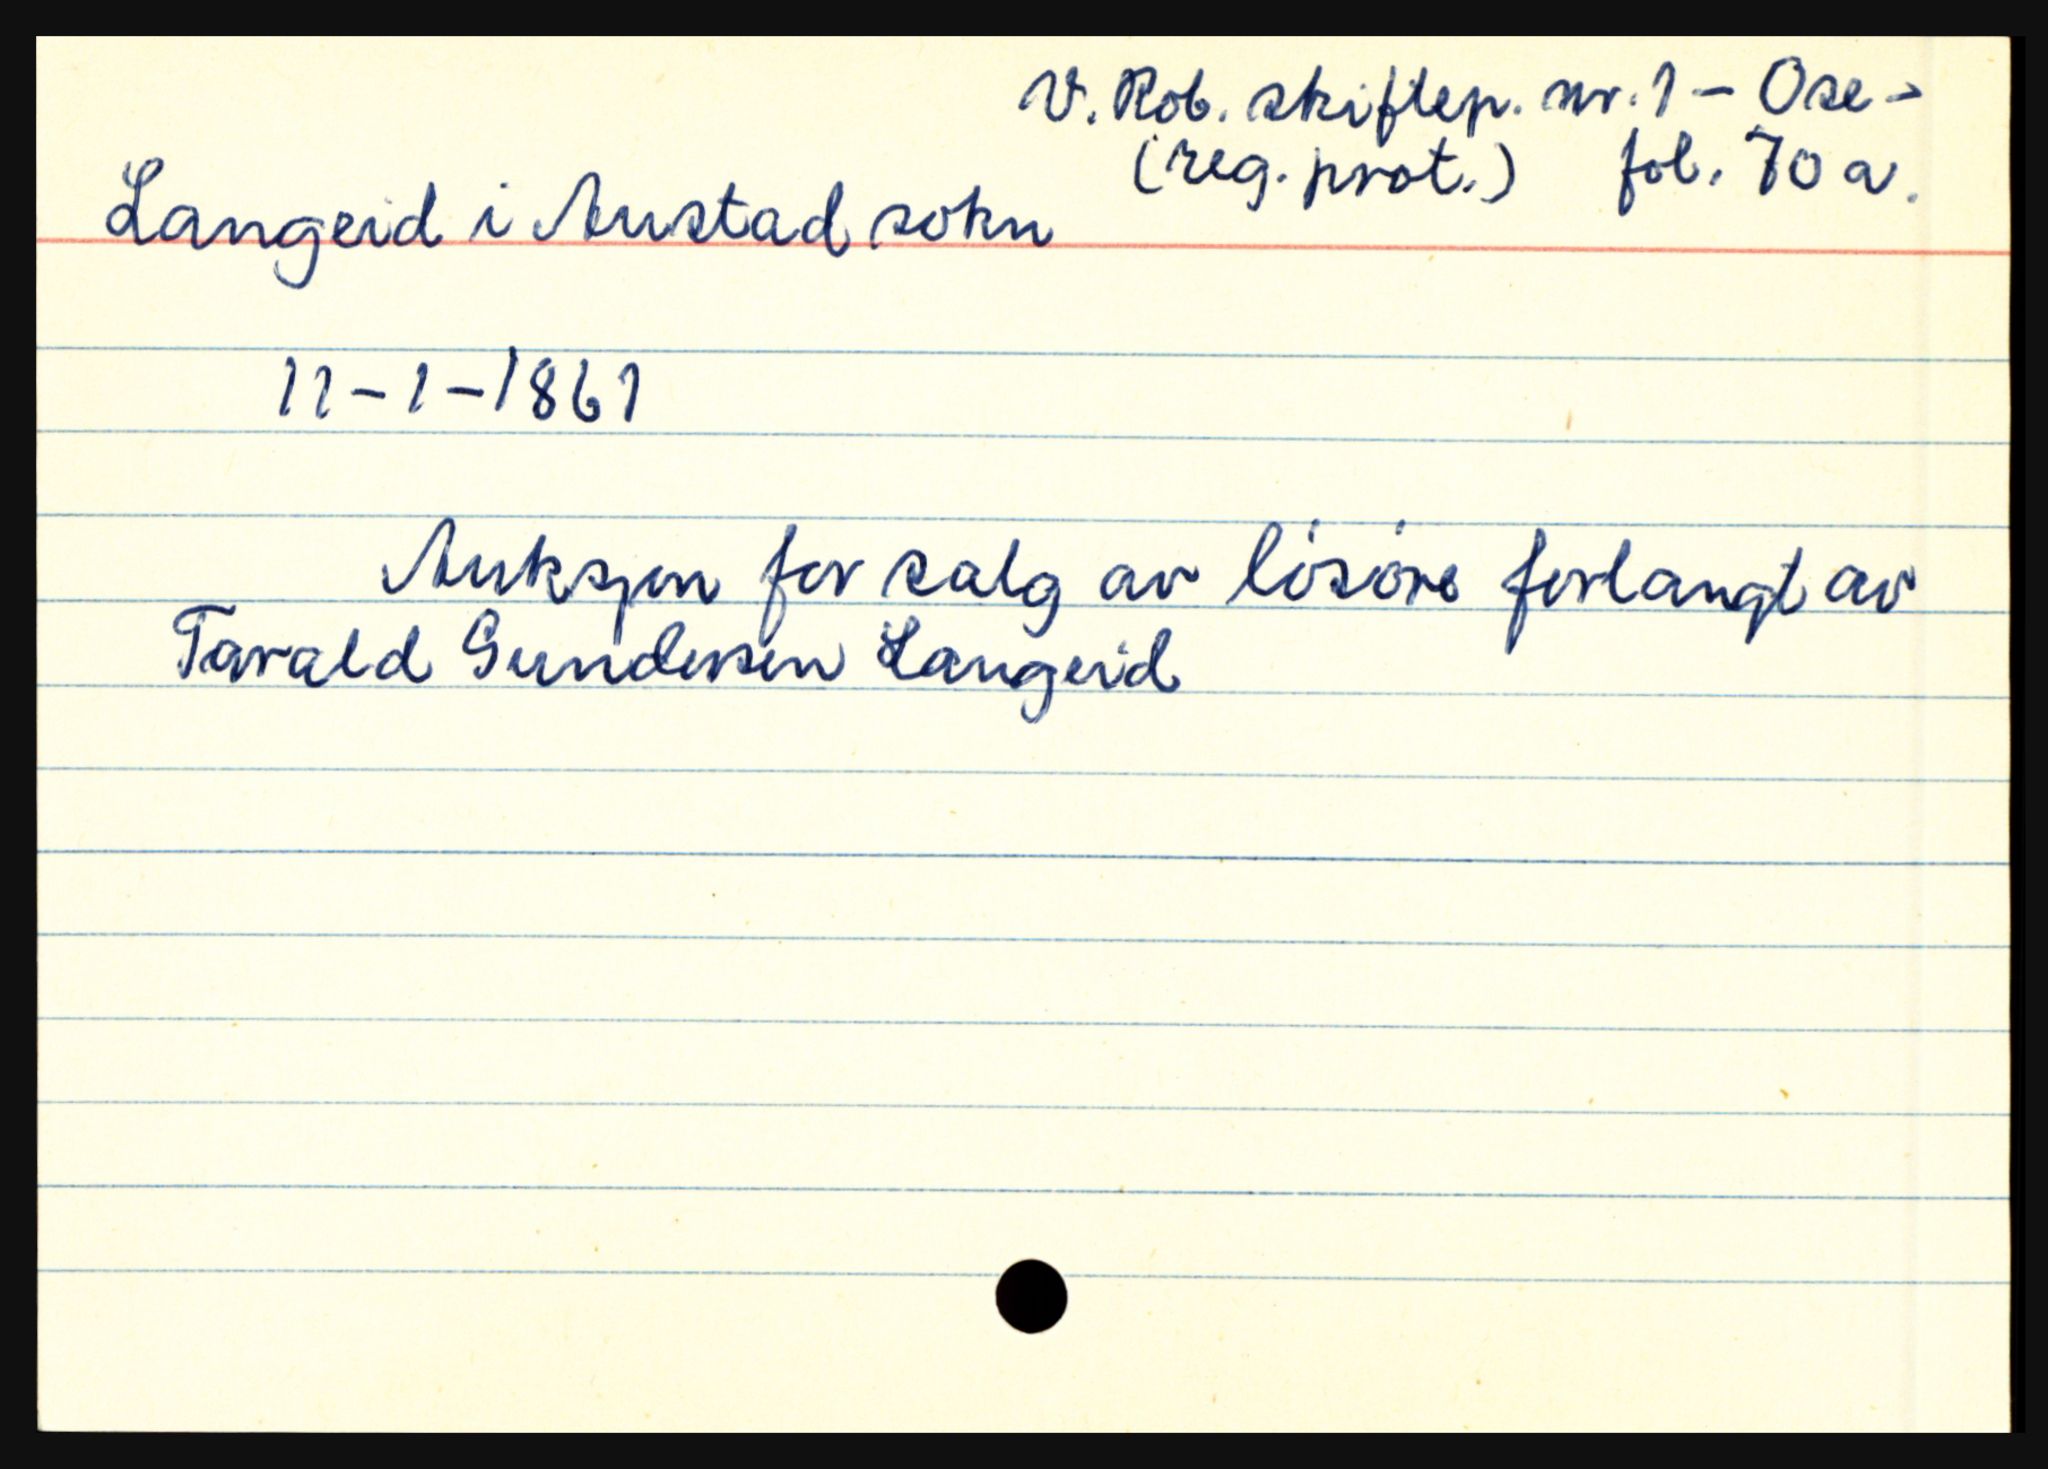 V. Rob. skiftep. nr. 1 – Ose –
(reg. prot.) fol. 70 a.
Langeid i Austad sokn
11 – 1 – 1861
Auksjon for salg av lósóre forlangt av
Tarald Gundersen Langeid